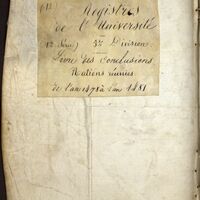 Registres
de l'Université
1re Série) 3e Division
Livre des Conclusions
Nations réunies
de l'an 1478 à l'an 1481